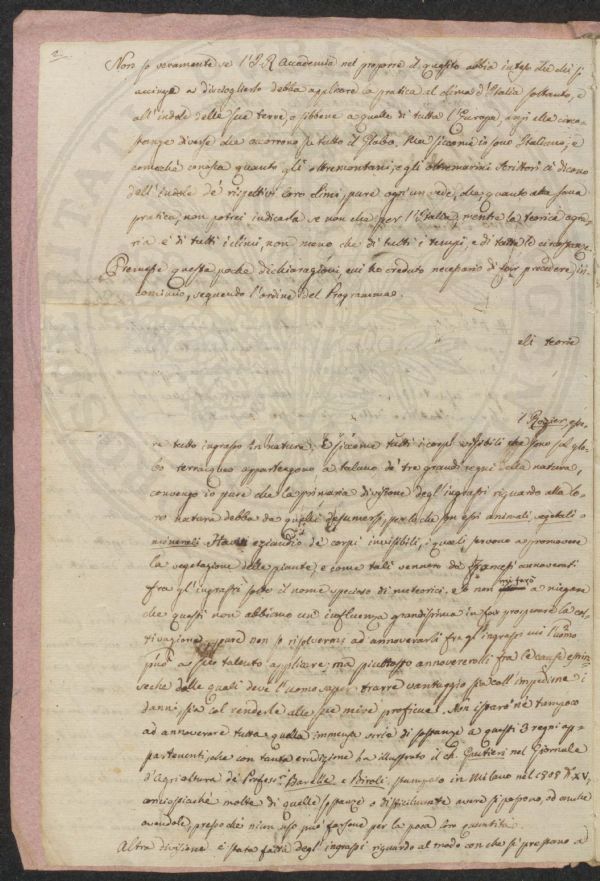 2.
Non so veramente se l'I. R. Accademia nel proporre il quesito abbia inteso che chi si
accinge a discioglierlo debba applicare la pratica al clima d'Italia soltanto, e
all'indole delle sue terre, o sibbene a quelle di tutta l'Europa, anzi alle circo-
stanze diverse che occorrono su tutto il Globo. Ma siccome io sono Italiano, e
comechè conosca quanto gli oltremontani, e gli oltremarini Scrittori ci dicono
dell'indole de' rispettivi loro climi, pure ogn'un vede, che quanto alla sana
pratica, non potrei indicarla se non che per l'Italia, mentre la teorica agra-
ria è di tutti i climi, non meno che di tutti i tempi, e di tutte le circostanze.
Premesse queste poche dichiarazioni, cui ho creduto necessario di far precedere, in-
comincio, seguendo l'ordine del Programma.
teorie
l Rozier,
re tutto ingrasso in natura. E siccome tutti i corpi visibili che sono sul glo-
bo terraqueo appartengono a taluno de' tre grandi regni della natura,
convengo io pure che la primaria divisione degl'ingrassi riguardo alla lo-
ro natura debba da quelli desumersi, per lo che son essi animali, vegetali o
minerali. Havvi eziandio de' corpi invisibili, i quali servono a promovere
la vegetazione delle piante, e come tali vennero da' Francesi annoverati
fra gl'ingrassi sotto il nome specioso di meteorici. Io non a niegare
che questi non abbiano un'influenza grandissima in far prosperare la col-
tivazione, pure non so risolvermi ad annoverarli fra gl'ingrassi cui l'uomo
può a suo talento applicare; ma piuttosto annovererolli fra le cause estrin-
seche dalle quali deve l'uomo saper trarre vantaggio sia coll'impedirne i
danni, sia col renderle alle sue mire proficue. Non istarò nè tampoco
ad annoverare tutta quella immensa serie di sostanze a questi 3 regni ap-
partenenti, che con tanta erudizione ha illustrato il ch. Gautieri nel Giornale
d'Agricoltura de' Profess.ri Barelle e Biroli, stampato in Milano nel 1808 XV,
conciossiachè molte di quelle sostanze o difficilmente avere si possono, ed anche
avendole, pressochè niun uso può farsene per la poca loro quantità.
Altra divisione è stata fatta degl'ingrassi riguardo al modo con che si prestano a